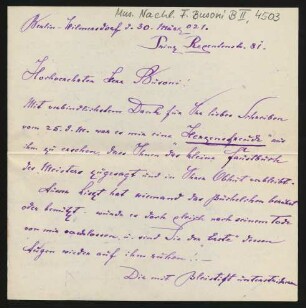 Mus. Nachl. F. Busoni B II, 4503
Berlin-Wilmersdorf d. 30. März 021.
Prinz Regentenstr. 31.
Hochverehrter Herr Busoni!
Mit verbindlichstem Dank für Ihr liebes Schreiben
vom 25. d. M. war es mir eine Herzensfreude aus
ihm zu ersehen, dass Ihnen das kleine Faustbuch
des Meisters zugesagt und in Ihrer Obhut verbleibt.
Liszt hat niemand das Büchelchen
oder benützt, wurde es doch gleich nach seinem Tode
von mir u. sind Sie der "Erste" dessen
Augen wieder auf ihm ruhen!
Die mit Bleistift unterstrichenen